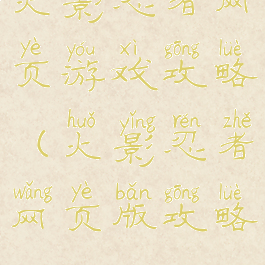 火影忍者网
yè yóu xì gōng luè
页游戏攻略
huǒ yǐng rěn zhě
（火影忍者
wǎng yè bǎn gōng luè
网页版攻略